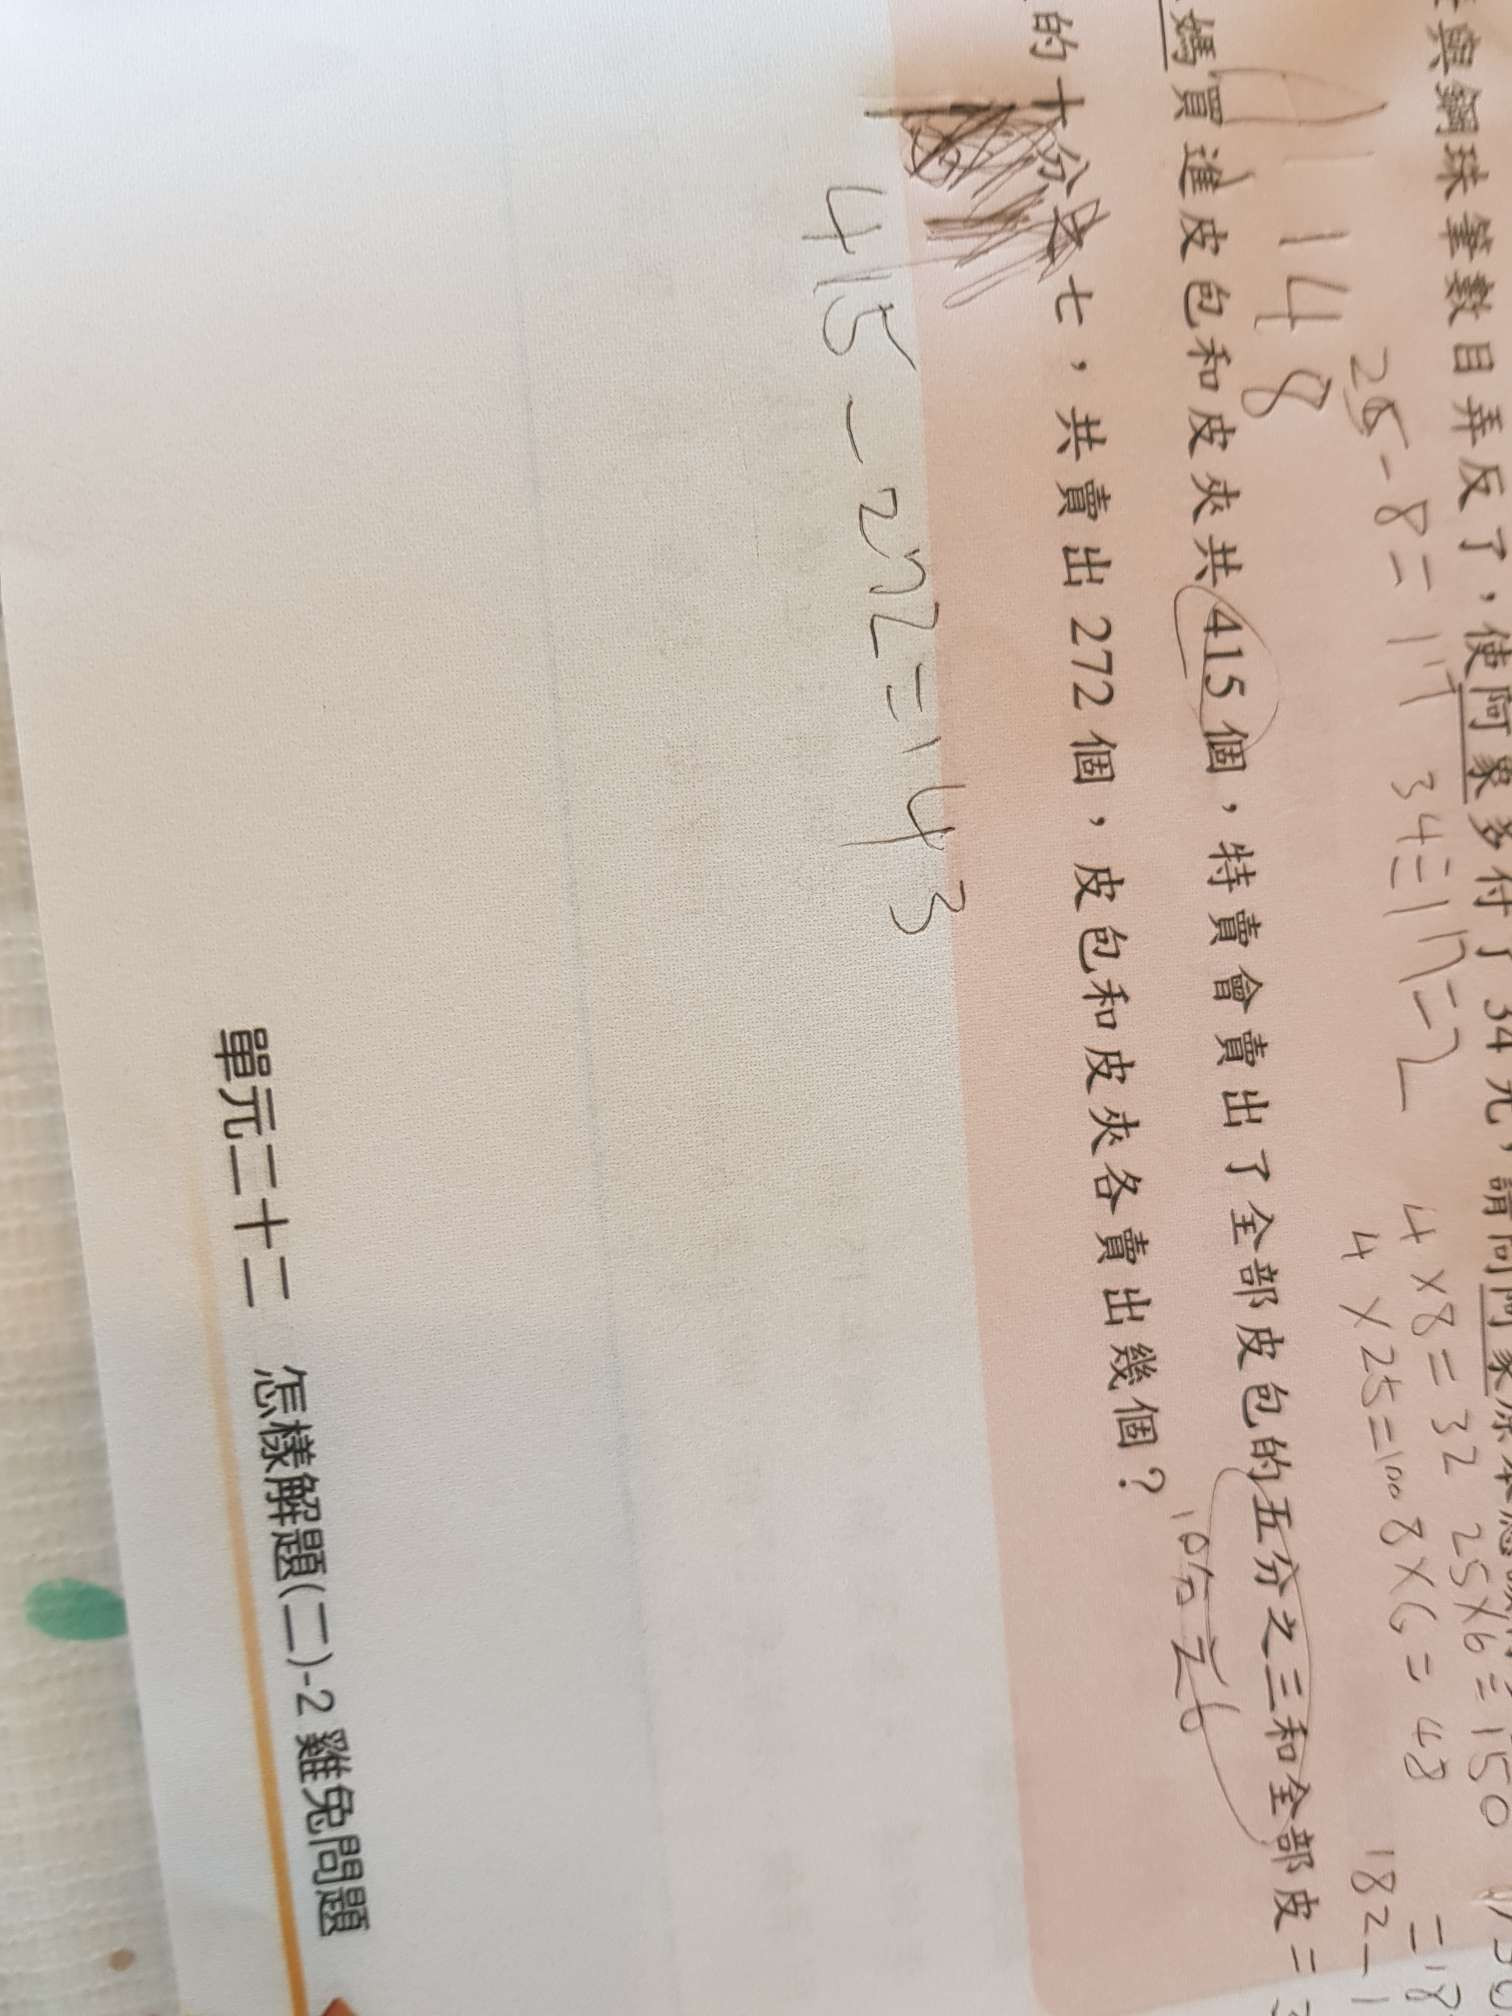 與鋼珠筆數目弄反了，使阿象多付了34元，請問阿象原本應該
4×8=32 25×6=150
25-8=17 34÷17=2 4×25=100 8×6=48
148 182-
媽買進皮包和皮夾共415個，特賣會賣出了全部皮包的五分之三和全部皮
10分之6
的十分之七，共賣出272個，皮包和皮夾各賣出幾個？
415-272=143
單元二十二 怎樣解題(二)-2 雞兔問題